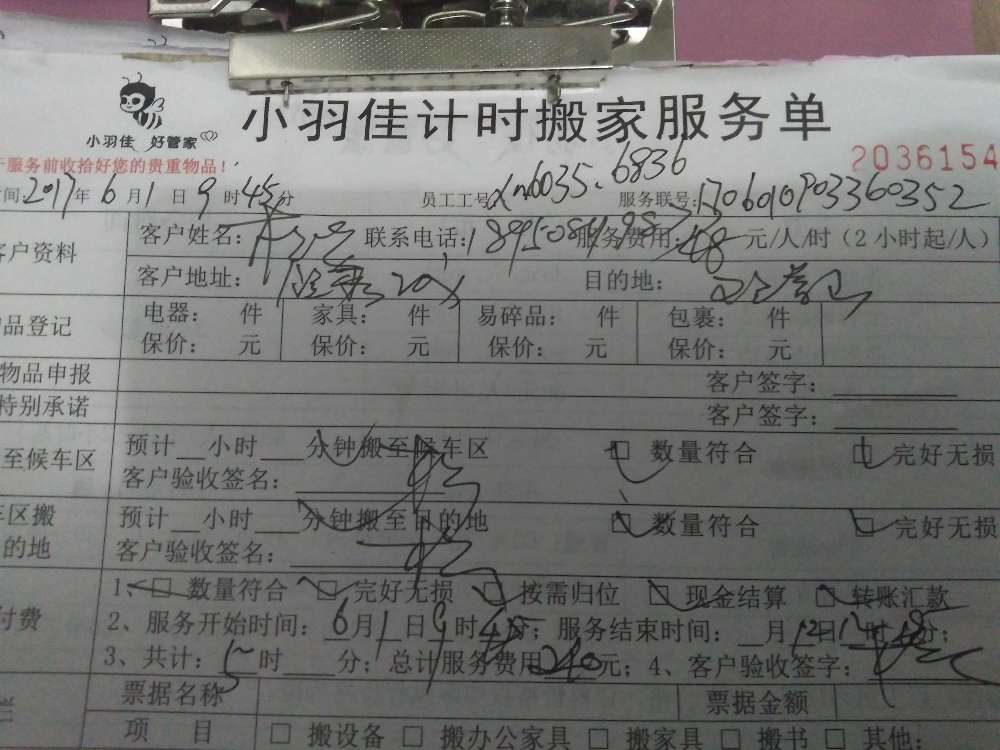 小羽佳 好管家
小羽佳计时搬家服务单
服务前收拾好您的贵重物品！
2036154
间:2017年6月1日9时45分 员工工号 6035.6836 服务联号:
客户资料 客户姓名: 联系电话: 服务费用:48元/人/时（2小时起/人）
客户地址: 目的地:
品登记 电器: 件 家具: 件 易碎品: 件 包裹: 件
保价: 元 保价: 元 保价: 元 保价: 元
物品申报 客户签字:
特别承诺 客户签字:
至候车区 预计__小时___分钟搬至候车区 □ 数量符合 □ 完好无损
客户验收签名:
区搬 预计__小时___分钟搬至目的地 □ 数量符合 □ 完好无损
的地 客户验收签名:
付费 1、□ 数量符合 □ 完好无损 □ 按需归位 □ 现金结算 □ 转账汇款
2、服务开始时间: 6月1日9时45分; 服务结束时间: 月 日 时 分;
3、共计: 5时 分; 总计服务费用240元; 4、客户验收签字:
栏 票据名称 票据金额
项 目 □ 搬设备 □ 搬办公家具 □ 搬家具 □ 搬书 □ 其他: